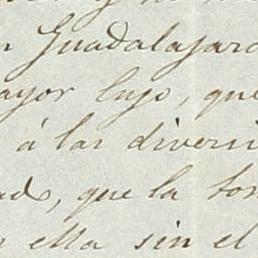 n Guadalajara
ayor lujo, que
á las diversi
ad, que la ton
ella sin el